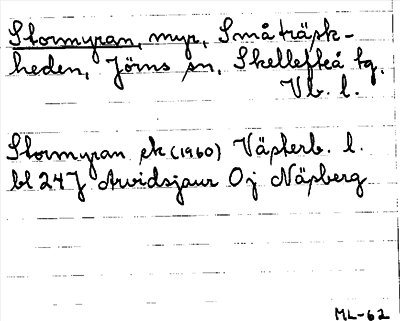 Stormyran, myr, Småträsk-
heden, Jörns sn, Skellefteå tg.
Vb. l.
Stormyran ek (1960) Västerb. l.
bl 24J Arvidsjaur Oj Näsberg
ML-62